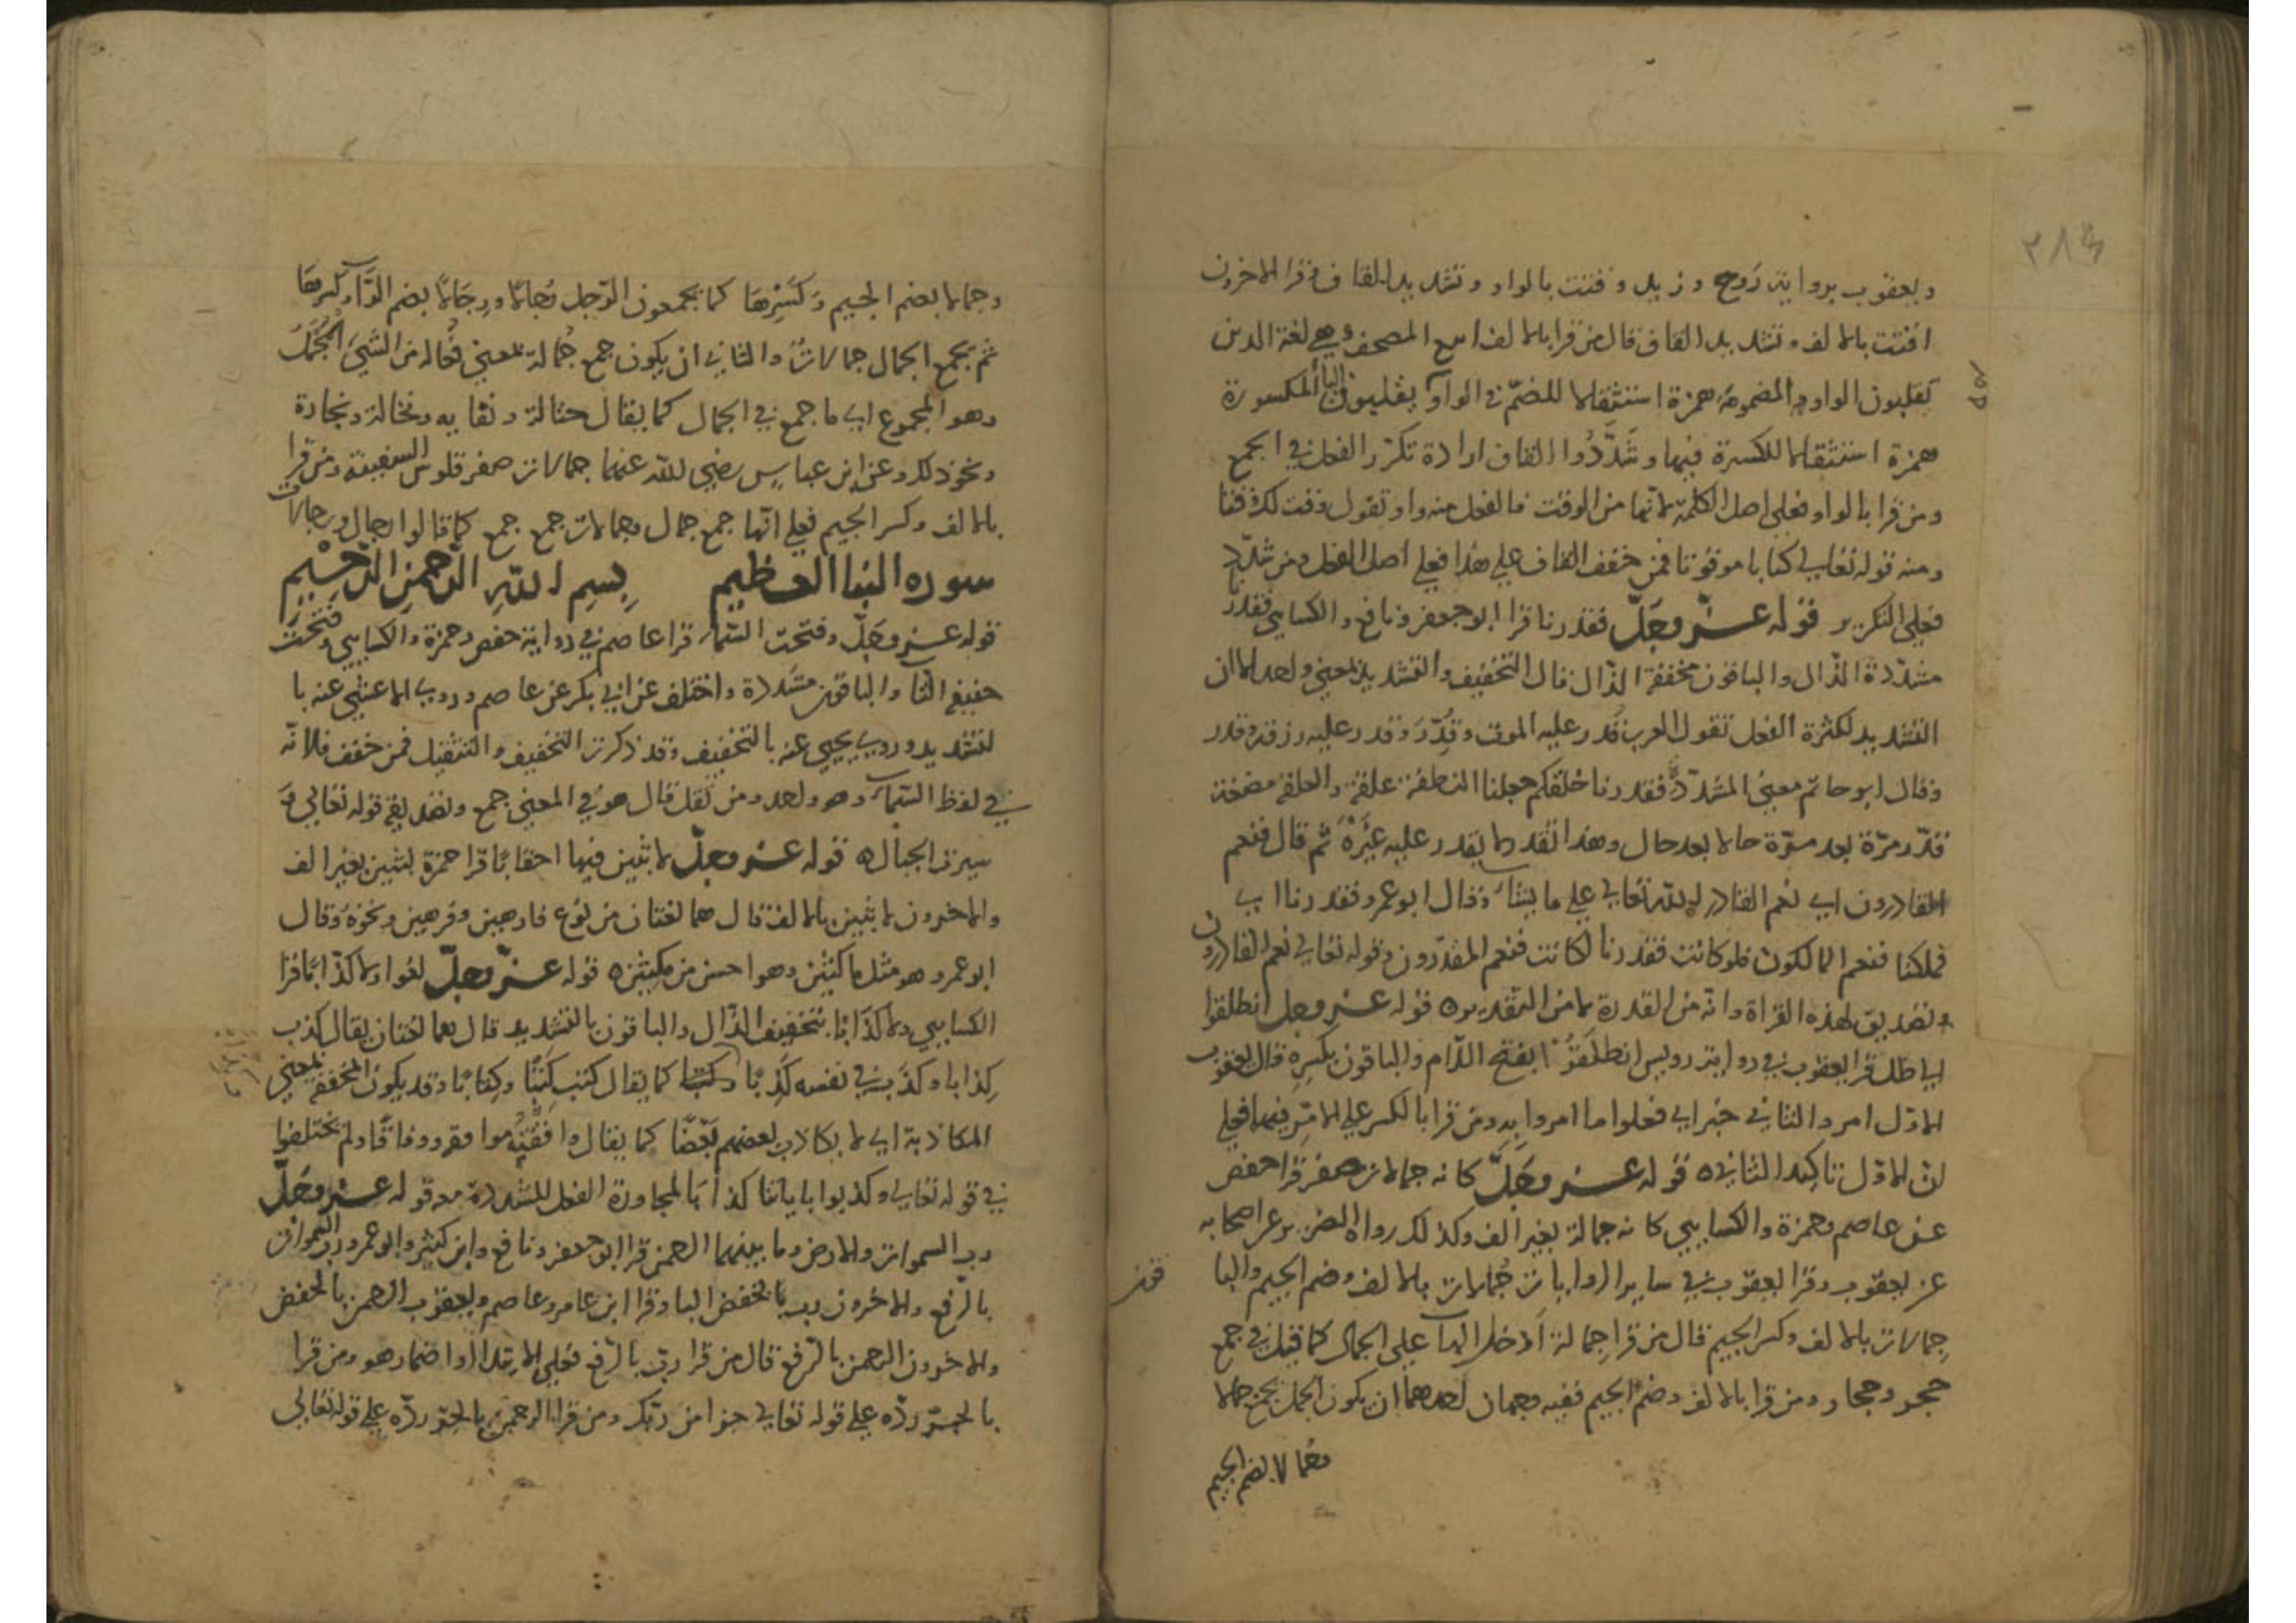 ٢٨٣
ويعقوب برواية روح وزيد وقتت بالواو وتشديد القاف وقرا الاخرون
اقتت بالالف وتشديد القاف قال من قرا بالالف اتبع المصحف وهي لغة الذين
يقلبون الواو المضمومة همزة استثقالا للضم في الواو يقلبون الياء المكسورة
همزة استثقالا للكسرة فيها وشددوا القاف ارادة تكرر الفعل في الجمع
ومن قرا بالواو فعلى اصل الكلمة لانها من الوقت فالفعل منه واو تقول وقت لك وقتا
ومنه قوله تعالى كتابا موقوتا فمن خفف القاف على هذا فعلى اصل الفعل ومن شدد
فعلى التكرير قوله عز وجل فقدرنا قرا ابو جعفر ونافع والكسايي فقدرنا
مشددة الدال والباقون مخففة الدال قال التخفيف والتشديد بمعنى واحد الا ان
التشديد لكثرة الفعل تقول العرب قدر عليه الموت وقدر وقدر عليه رزقه وقدر
وقال ابو حاتم معنى المشدد فقدرنا خلقكم جعلنا النطفة علقة والعلقة مضغة
قدر مرة بعد مرة حالا بعد حال وهذا تقدير لا يقدر عليه غيره ثم قال فنعم
القادرون اي نعم القادر الله تعالى على ما يشاء وقال ابو عمرو فقدرنا اي
فملكنا فنعم المالكون فلو كانت فقدرنا لكانت فنعم المقدرون وقوله تعالى نعم القادرون
تصديق لهذه القراة وانه من القدرة لا من التقدير ه قوله عز وجل انطلقوا
الى ظل قرا يعقوب في رواية رويس انطلقوا بفتح اللام والباقون بكسره قال يعقوب
الاول امر والثاني خبر اي فعلوا ما امروا به ومن قرا بالكسر على الامر فيهما فعلى
ان الاول تاكيد الثاني ه قوله عز وجل كانه جمالات صفر قرا حفص
عن عاصم وحمزة والكسايي كانه جمالة بغير الف وكذلك رواه الضرير عن اصحابه
عن يعقوب وقرا يعقوب في ساير الروايات جمالات بالالف وضم الجيم والبا
قون
جمالات بالالف وكسر الجيم قال من قرا جمالة ادخل الها على الجمال كما قيل في جمع
حجر وحجار ومن قرا بالالف وضم الجيم ففيه وجهان احدهما ان يكون الجمل يجمع جمالا
وجمالا بضم الجيم
وجمالا بضم الجيم وكسرها كما يجمعون الرجل رجالا ورجالا بضم الرا وكسرها
ثم يجمع الجمال جمالات والثاني ان يكون جمع جمالة بمعنى فعالة من الشيء المجمل
وهو المجموع اي ما جمع في الجمال كما يقال حثالة ونقاية ونخالة ونجارة
ونحو ذلك وعن ابن عباس رضي الله عنهما جمالات صفر قلوس السفينة ومن قرا
بالالف وكسر الجيم فعلى انها جمع جمال وجمالات جمع جمع كما قالوا رجال ورجالات
سورة النبا العظيم بسم الله الرحمن الرحيم
قوله عز وجل وفتحت السماء قرا عاصم في رواية حفص وحمزة والكسايي وفتحت
خفيف التا والباقون مشددة واختلف عن ابي بكر عن عاصم وروى الاعشى عنه با
لتشديد وروى يحيى عنه بالتخفيف وقد ذكرت التخفيف والتثقيل فمن خفف فلانه
في لفظ السماء وهو واحد ومن ثقل قال هو في المعنى جمع وتصديقه قوله تعالى و
سيرت الجبال ه قوله عز وجل لابثين فيها احقابا قرا حمزة لبثين بغير الف
والاخرون لابثين بالالف قال هما لغتان من نوع فارهين وفرهين ونحوه وقال
ابو عمرو هو مثل ماكثين وهو احسن من مكثين ه قوله عز وجل لغوا ولا كذابا قرا
الكسايي ولا كذابا بتخفيف الذال والباقون بالتشديد قال هما لغتان يقال كذب
كذابا وكذب في نفسه كذبا كما يقال كتب كتبا وكتابا وقد يكون المخفف بمعنى
المكاذبة اي لا يكاذب بعضهم بعضا كما يقال وافقته موافقة ووفاقا ولم يختلفوا
في قوله تعالى وكذبوا باياتنا كذابا لمجاورة الفعل المشددة معه قوله عز وجل
رب السموات والارض وما بينهما الرحمن قرا ابو جعفر ونافع وابن كثير وابو عمرو رب السموات
بالرفع والاخرون رب بالخفض البا وقرا ابن عامر وعاصم ويعقوب الرحمن بالخفض
والاخرون الرحمن بالرفع قال من قرا رب بالرفع فعلى الابتدا او اضمار هو ومن قرا
بالجر رده على قوله تعالى جزا من ربك ومن قرا الرحمن بالجر رده على قوله تعالى